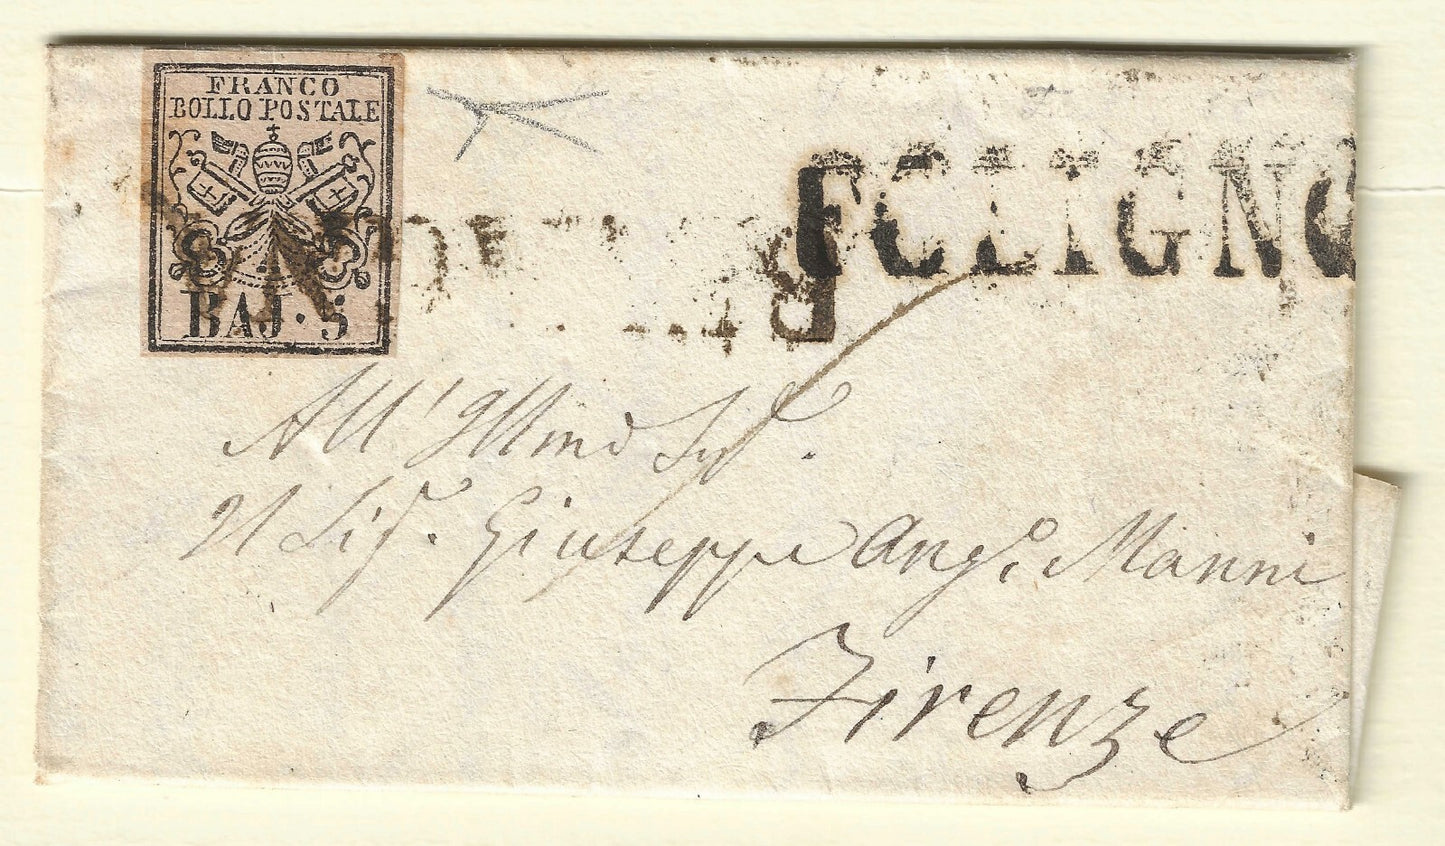 FRANCO
BOLLO POSTALE
BAJ. 5
FOLIGNO
All' Illmo Sigr.
Il Sig. Giuseppe Ango. Manni
Firenze